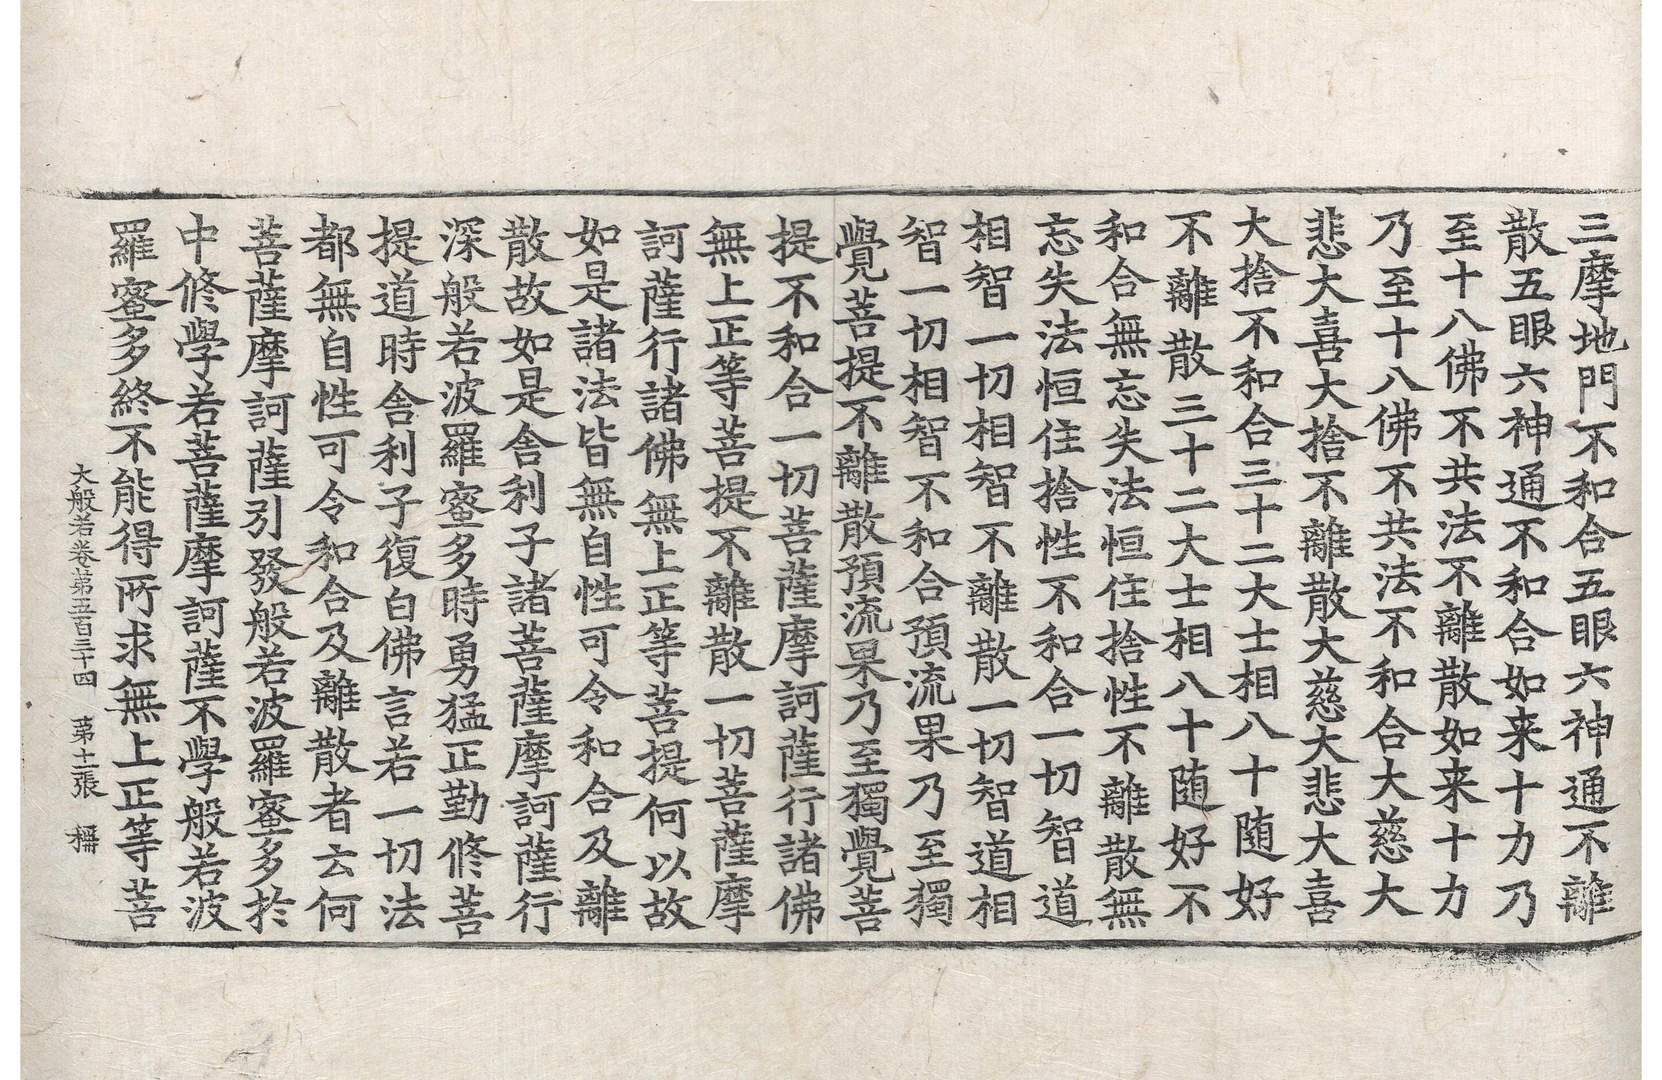 三摩地門不和合五眼六神通不離
散五眼六神通不和合如来十力乃
至十八佛不共法不離散如来十力
乃至十八佛不共法不和合大慈大
悲大喜大捨不離散大慈大悲大喜
大捨不和合三十二大士相八十随好
不離散三十二大士相八十随好不
和合無忘失法恒住捨性不離散無
忘失法恒住捨性不和合一切智道
相智一切相智不離散一切智道相
智一切相智不和合預流果乃至獨
覺菩提不離散預流果乃至獨覺菩
提不和合一切菩薩摩訶薩行諸佛
無上正等菩提不離散一切菩薩摩
訶薩行諸佛無上正等菩提何以故
如是諸法皆無自性可令和合及離
散故如是舍利子諸菩薩摩訶薩行
深般若波羅蜜多時勇猛正勤修菩
提道時舍利子復白佛言若一切法
都無自性可令和合及離散者云何
菩薩摩訶薩引發般若波羅蜜多於
中修學若菩薩摩訶薩不學般若波
羅蜜多終不能得所求無上正等菩
大般若卷第五百三十四 第十一張 稱